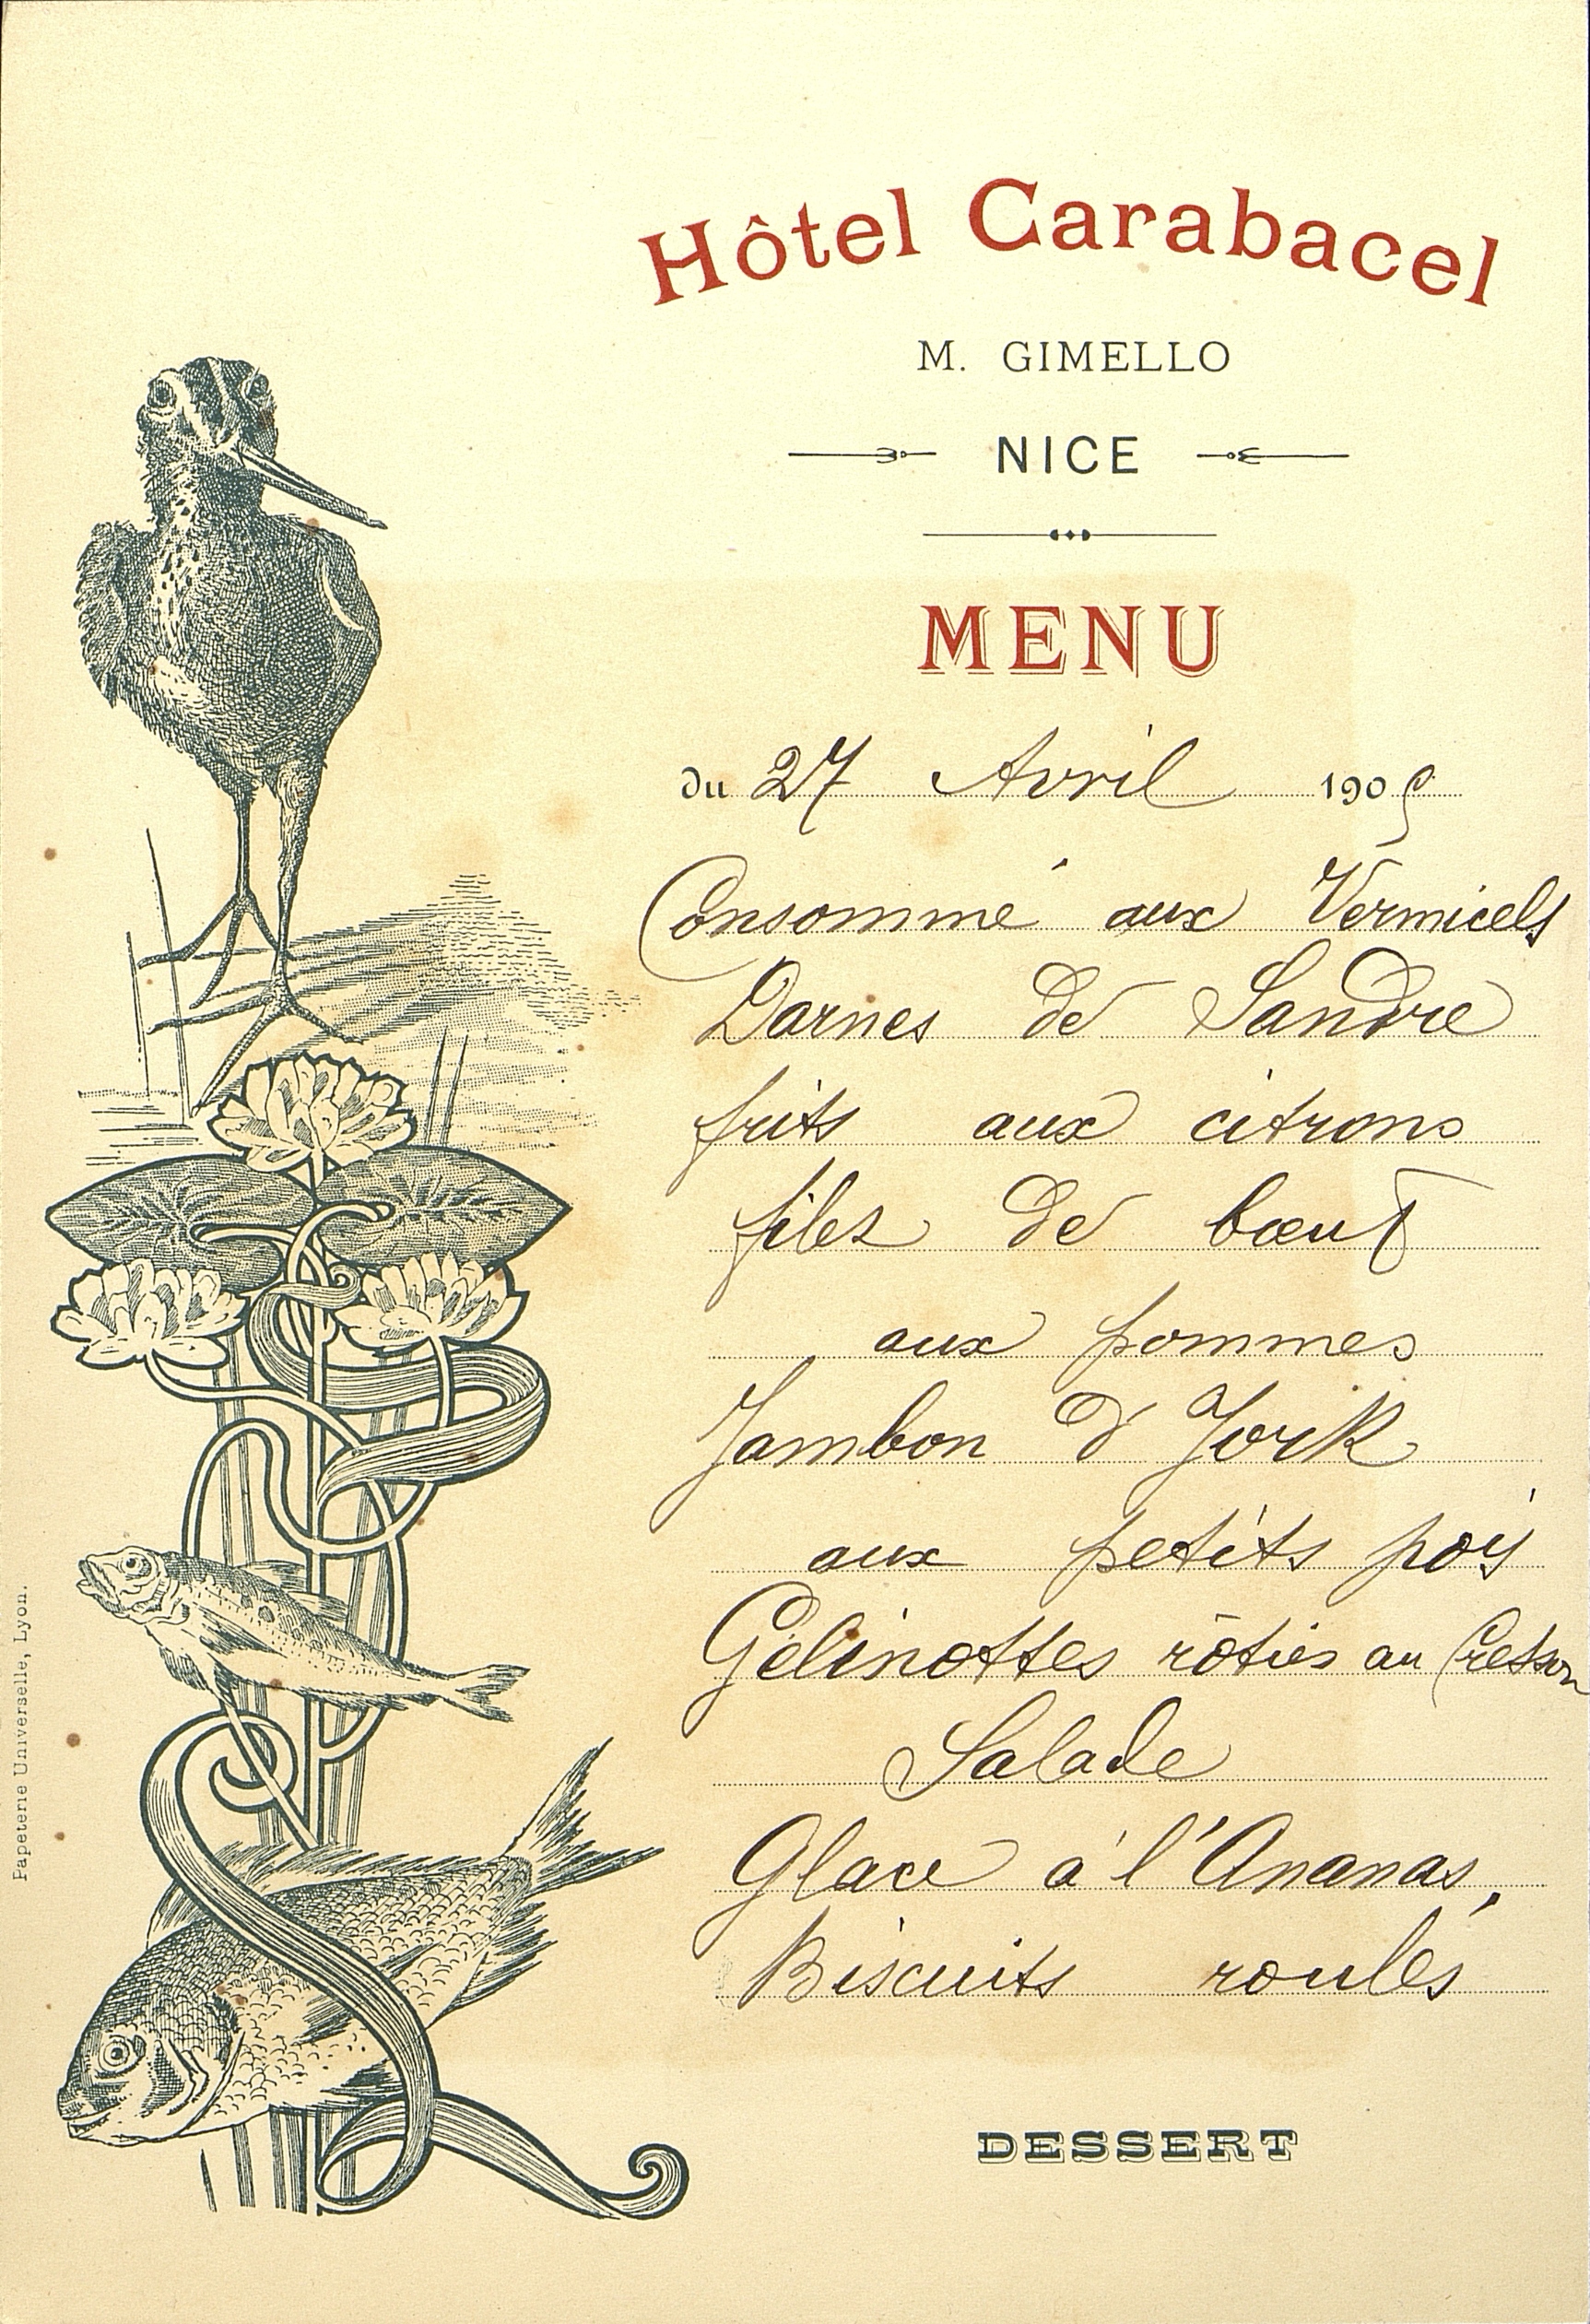 Hôtel Carabacel
M. GIMELLO
NICE
MENU
du 27 Avril 1905
Consommé aux Vermicels
Darnes de Sandre
frits aux citrons
filez de bœuf
aux pommes
Jambon d'York
aux petits pois
Gélinottes rôties au Cresson
Salade
Glace à l'Ananas,
Biscuits roulés
DESSERT
Papeterie Universelle, Lyon.